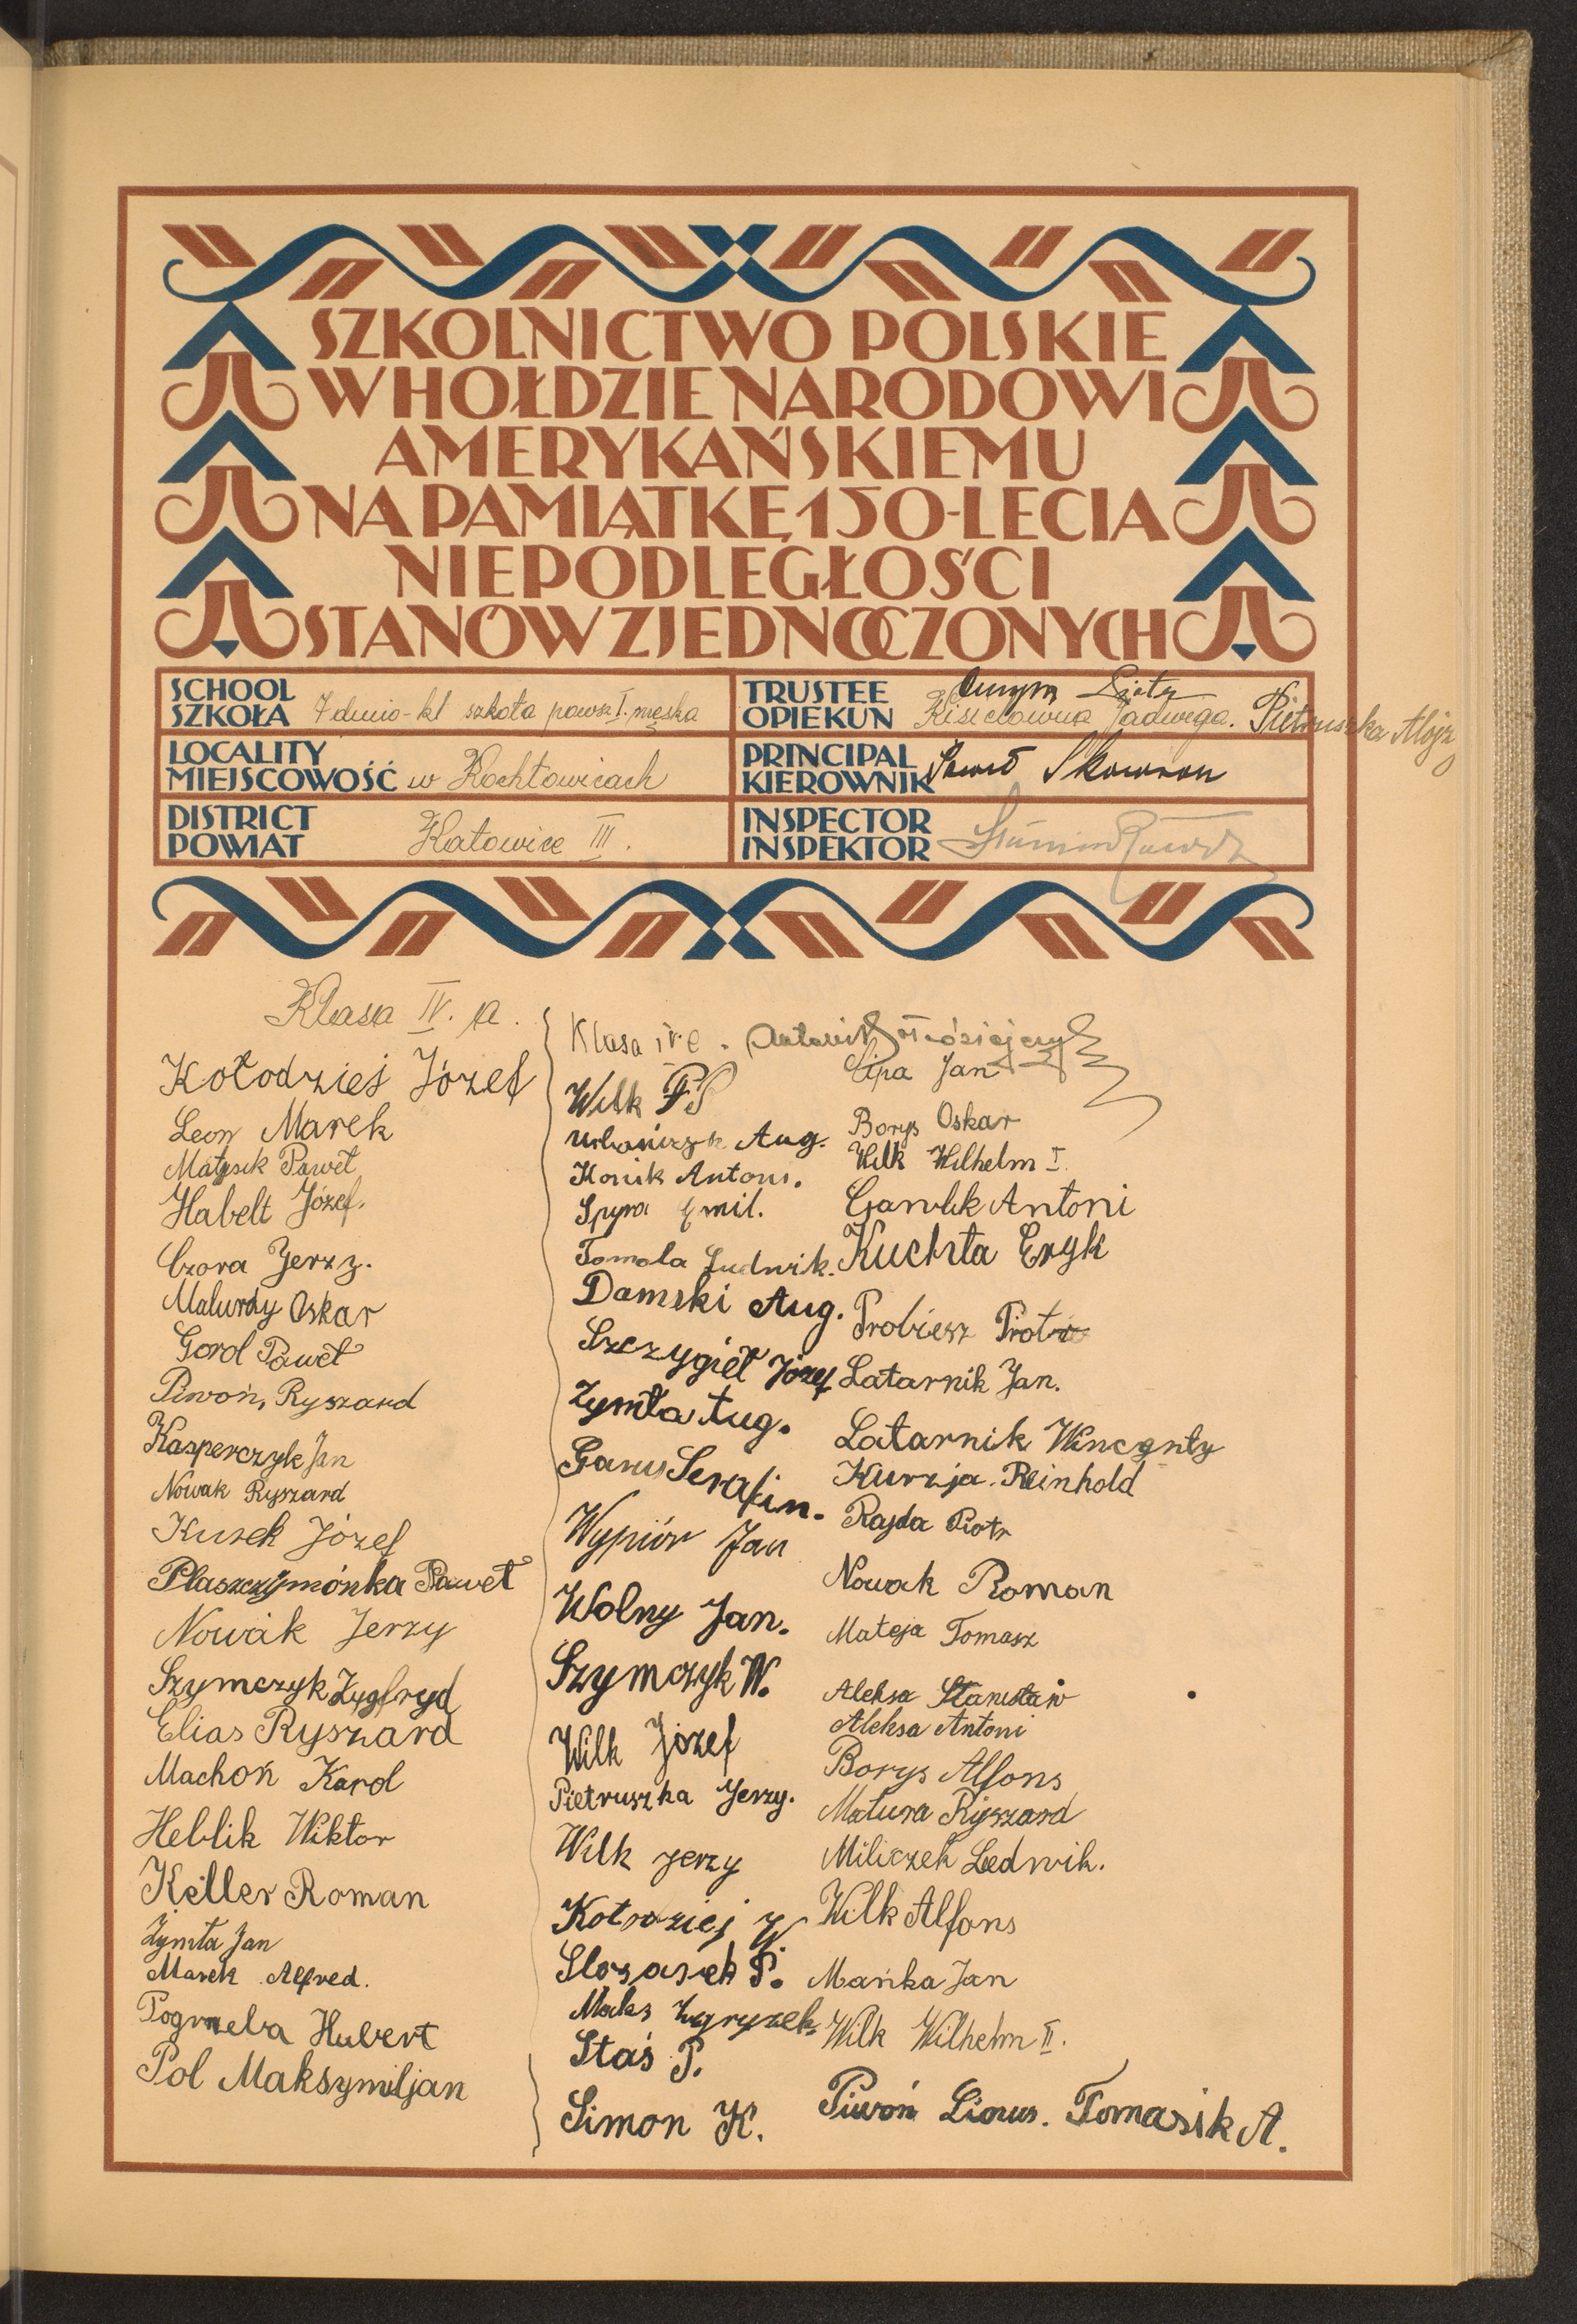 SZKOLNICTWO POLSKIE
W HOŁDZIE NARODOWI
AMERYKAŃSKIEMU
NA PAMIĄTKĘ 150-LECIA
NIEPODLEGŁOŚCI
STANÓW ZJEDNOCZONYCH
SCHOOL
SZKOŁA
7 dmio-kl szkoła powsz. I. męska
TRUSTEE
OPIEKUN
Kisielówna Jadwiga. Pietruszka Alojz
LOCALITY
MIEJSCOWOŚĆ
w Kochłowicach
PRINCIPAL
KIEROWNIK
Paweł Skowron
DISTRICT
POWIAT
Katowice III.
INSPECTOR
INSPEKTOR
Klasa IV. a.
Kołodziej Józef
Leon Marek
Matysik Paweł
Habelt Józef.
Czora Jerzy.
Malurdy Oskar
Gorol Paweł
Piwoń, Ryszard
Kasperczyk Jan
Nowak Ryszard
Kusek Józef
Plaszczymónka Paweł
Nowak Jerzy
Szymczyk Zygfryd
Elias Ryszard
Machoń Karol
Heblik Wiktor
Keller Roman
Żymła Jan
Marek Alfred.
Pogrzeba Hubert
Pol Maksymiljan
Klasa IV. e.
Wilk
Urbańczyk Aug.
Konik Antoni.
Spyra Emil.
Tomala Ludwik.
Damski Aug.
Szczygieł Józef
Żymła Aug.
Garus Serafin.
Wypiór Jan
Wolny Jan.
Szymczyk W.
Wilk Józef
Pietruszka Jerzy.
Wilk Jerzy
Kołodziej W
Slosasek P.
Maks Zgryzek
Staś P.
Simon K.
Lipa Jan
Borys Oskar
Wilk Wilhelm I.
Gawlik Antoni
Kuchta Eryk
Probiesz Piotr
Latarnik Jan.
Latarnik Wincenty
Kurzja. Reinhold
Rajda Piotr
Nowak Roman
Mateja Tomasz
Aleksa Stanisław
Aleksa Antoni
Borys Alfons
Matura Ryszard
Miliczek Ledwik.
Wilk Alfons
Mańka Jan
Wilk Wilhelm II.
Piwoń Tomasik A.